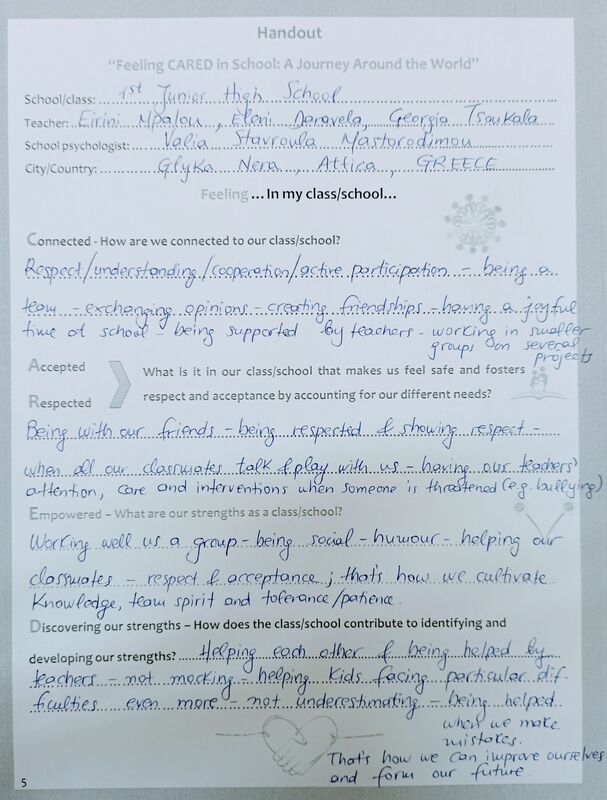 Handout
"Feeling CARED in School: A Journey Around the World"
School/class: 1st Junior High School
Teacher: Eirini Mpalou, Eleni Daravela, Georgia Tsoukala
School psychologist: Valia Stavroula Mastorodimou
City/Country: Glyka Nera, Attica, GREECE
Feeling ... In my class/school...
Connected - How are we connected to our class/school?
Respect/understanding/cooperation/active participation - being a
team - exchanging opinions - creating friendships - having a joyful
time at school - being supported by teachers - working in smaller
groups on several
projects
Accepted
Respected
What is it in our class/school that makes us feel safe and fosters
respect and acceptance by accounting for our different needs?
Being with our friends - being respected & showing respect -
when all our classmates talk & play with us - having our teachers'
attention, care and interventions when someone is threatened (e.g. bullying)
Empowered - What are our strengths as a class/school?
Working well us a group - being social - humour - helping our
classmates - respect & acceptance; that's how we cultivate
knowledge, team spirit and tolerance/patience.
Discovering our strengths – How does the class/school contribute to identifying and
developing our strengths? Helping each other & being helped by
teachers - not mocking - helping kids facing particular dif-
ficulties even more - not underestimating - being helped
when we make
mistakes.
That's how we can improve ourselves
and form our future.
5